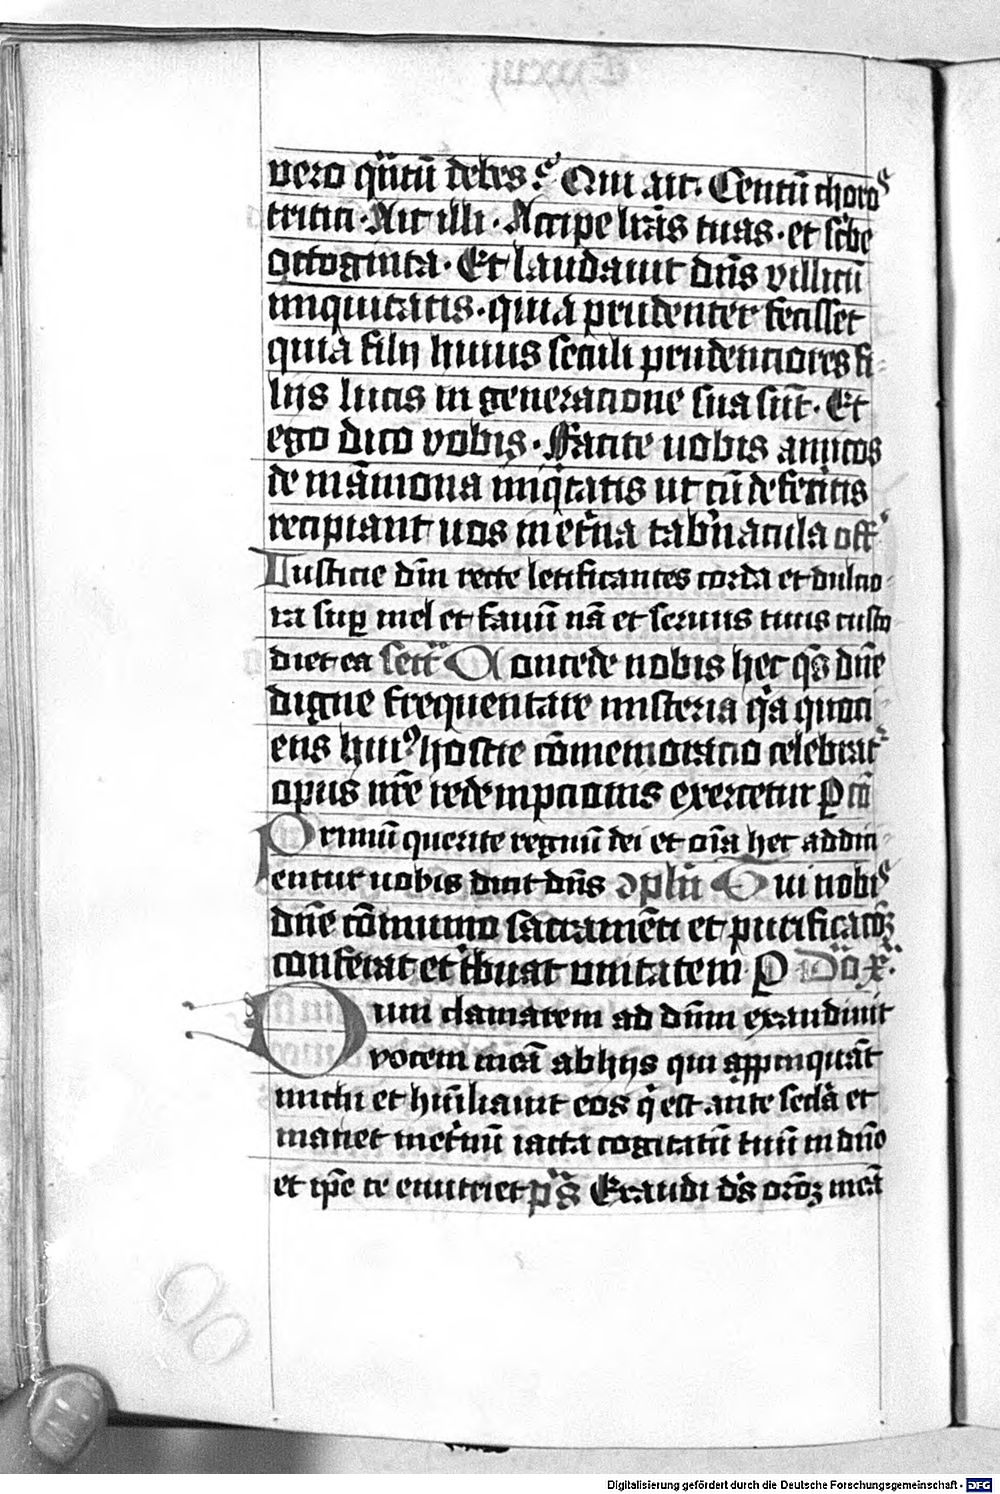 vero qūtū debes? Qui ait. Centū choros
tritici. Ait illi. Accipe lrās tuas. et scbe
octoginta. Et laudavit dn̄s villicū
iniquitatis. quia prudenter fecisset
quia filij huius seculi prudenciores fi-
lijs lucis in generacione sua sūt. Et
ego dico vobis. Facite uobis amicos
de māmona iniqitatis ut cū defecitis
recipiant uos in etna tabnacula off
Iusticie dn̄i recte letificantes corda et dulcio-
ra sup mel et fauū nā et seruus tuus custo
diet ea secr Concede nobis hec qs dn̄e
digne frequentare misteria qa quoci-
ens hui9 hostie cōmemoracio celebrat
opus nr̄e redempcionis exercetur P cū
Primū querite regnū dei et oīa hec addici-
entur uobis dicit dn̄s 9plū Tui nobis
dn̄e cōmunio sacramēti et purificacōꝫ
conferat et tbuat unitatem P Do x.
Dum clamarem ad dn̄m exaudiuit
vocem meā ab hijs qui appinquāt
michi et hūiliauit eos q est ante secla et
manet in etnū iacta cogitatū tuū in dn̄o
et ip̄e te enutriet ps Exaudi ds orōꝫ meā
Digitalisierung gefördert durch die Deutsche Forschungsgemeinschaft - DFG